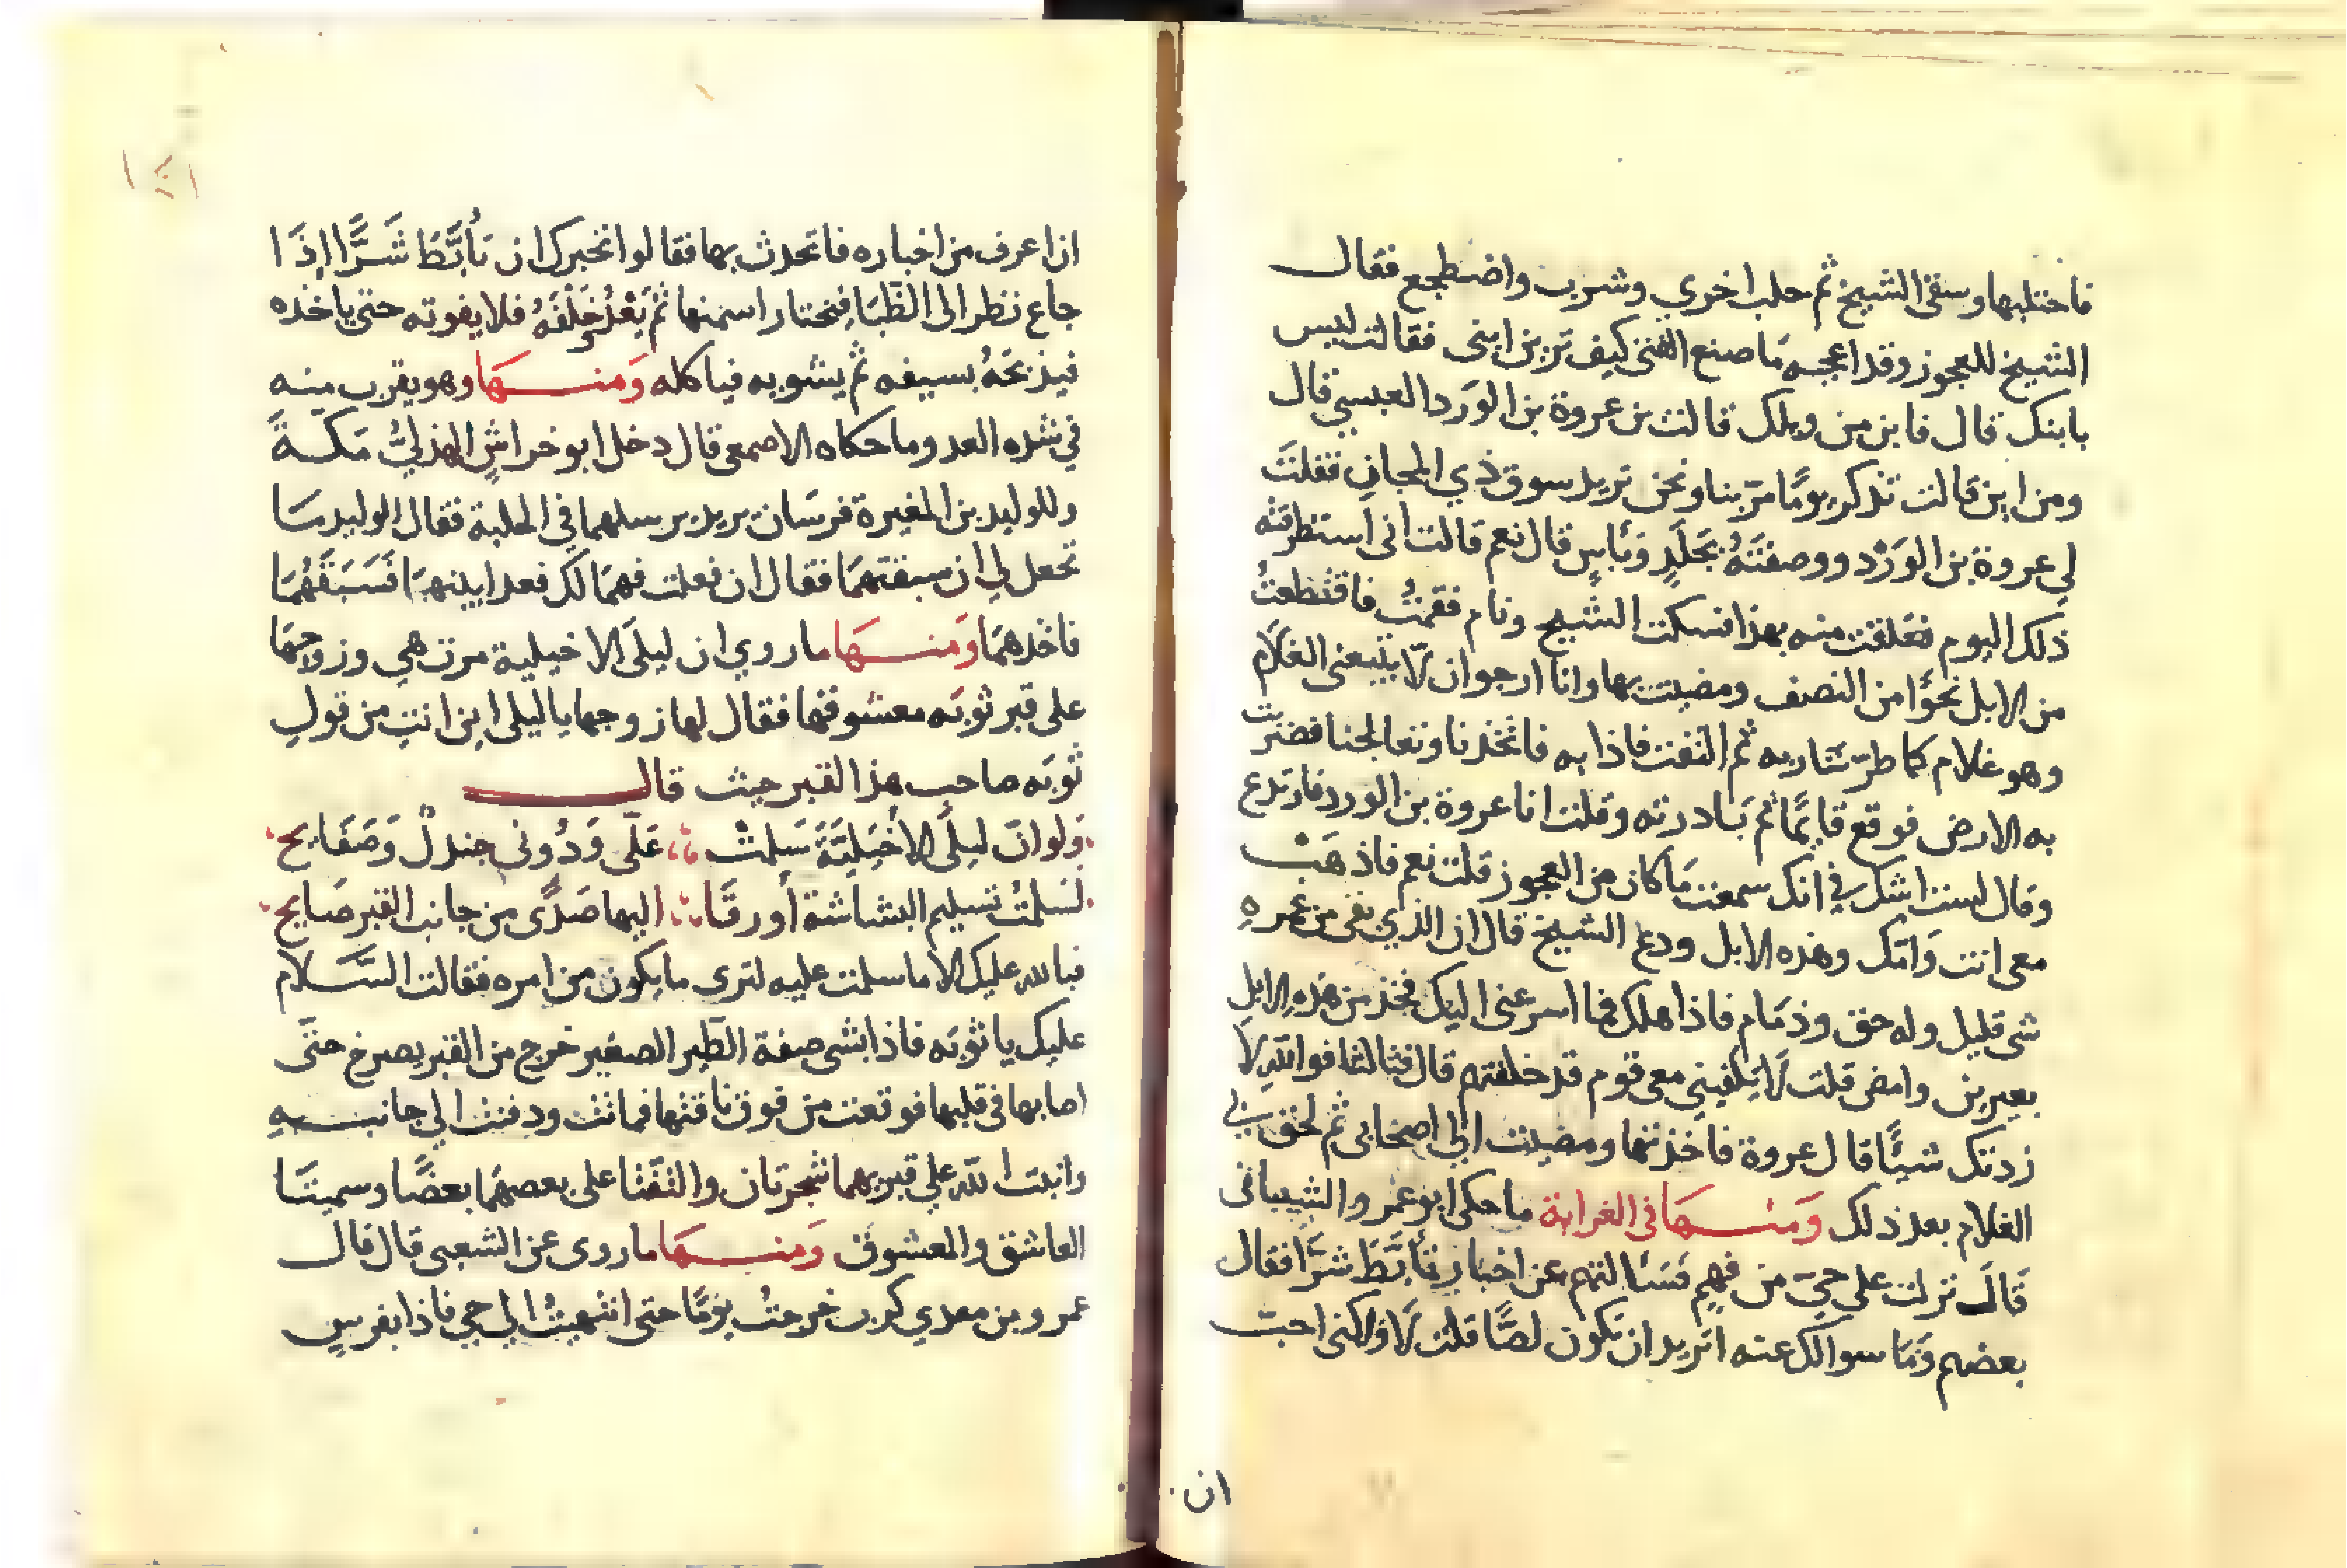 فاحتلبها وسقى الشيخ ثم حلب اخري وشرب واضطجع فقال
الشيخ للعجوز وقد اعجبه مَا صنع الفتى كيف ترين ابنى فقالت ليس
بابنك قال فابن من ويلك قالت بن عروة بن الورد العبسي قال
ومن اين قالت تذكر يومًا مرّ بنا ونحن نريد سوق ذي المجاز فقلتَ
لي عروة بن الوَرْد ووصفتَهُ بجَلَدٍ وَبَاسٍ قال نعم قالت انى استطرقته
ذلك اليوم فعَلقت منه بهذا فسكت الشيخ ونام فقمتُ فاقتطعتُ
من الابل نحوًا من النصف ومضيت بها وانا ارجو ان لَا يتبعنى الغلام
وهو غلام كما طرّ شاربه ثم التفت فاذا به فاتخذنا وتعالجنا فضربت
به الارض فوقع قايمًا ثم بَادرته وقلت انا عروة بن الورد فارتدع
وقال لست اشك في انك سمعت مَا كان من العجوز قلت نعم فاذهَبْ
معى انت وَامّك وهذه الابل ودع الشيخ قال ان الذي بقى من عمره
شى قليل وله حق وذمَام فاذا هلك فما اسرعنى اليك فخذ من هذه الابل
بعيرين وامض قلت لَا يكفينى معى قوم قد خلفتهم قال فثالثا فوالله لَا
زدتك شيئًا قال عروة فاخذتها ومضيت الى اصحابى ثم لحق بى
الغلام بعد ذلك وَمنـــهَا فى الغرابة ما حكى ابو عمرو الشيبانى
قَالَ نزلت على حىّ من فهم فسَالتهم عن اخبَار تأبَّطَ شرّا فقال
بعضهم وَمَا سوالك عنه اتريد ان تكون لصًّا قلت لَا ولاكنى احبّ
ان
ان اعرف من اخباره فاتحدث بها فقالوا نخبرك ان تأبَّطَ شَرًّا اِذَا
جاع نظر الى الظبَاء فيختار اسمنها ثم يَعْدُ خَلْفَهُ فلا يفوته حتى ياخذه
فيذبحَهُ بسيفه ثم يشويه فياكله وَمنـــهَا وهو يقرب منه
في شده العدو ما حكاه الاصمعى قال دخل ابو خراشٍ الهذليُّ مَكّةَ
وللوليد بن المغيرة فرسَان يريد يرسلهما في الحلبة فقال للوليد مَا
تجعل لي ان سبقتهمَا فقال ان فعلت فهمَا لك فعدا بينهمَا فَسَبَقَهُمَا
فاخذهمَا وَمنـــهَا ما روي ان ليلَى الاخيلية مرت هي وزوجهَا
على قبر ثوبَه معشوقها فقال لها زوجها ياليلى اين انتِ من قولِ
ثوبَه صاحب هذا القبر حيث قال
وَلوانّ ليلَى الاَخْيَليَّةَ سَلمتْ عَلَّى وَدُونى جندلٌ وَصَفَايح
لسَلمتُ تسليم البشاشة أو رقَا اليها صَدًى من جانب القبر صَايح
فبالله عليك الا ما سلمت عليه لنرى ما يكون من امره فقالت السَّلام
عليك يا ثوبَه فاذا بشى صفة الطير الصغير خرج من القبر يصرخ حتّى
اصابها فى قلبها فوقعت من فوق ناقتها فماتت ودفنت الي جانبـــه
وانبت الله علي قبريهما شجرتان والتفّتا على بعضهمَا بعضًا وسميتَا
العاشق والمعشوق وَمنـــهَا ما روى عن الشعبى قال قال
عمرو بن معدي كرب خرجتُ يومًا حتى انتهيتُ الي حي فاذا بفرسٍ